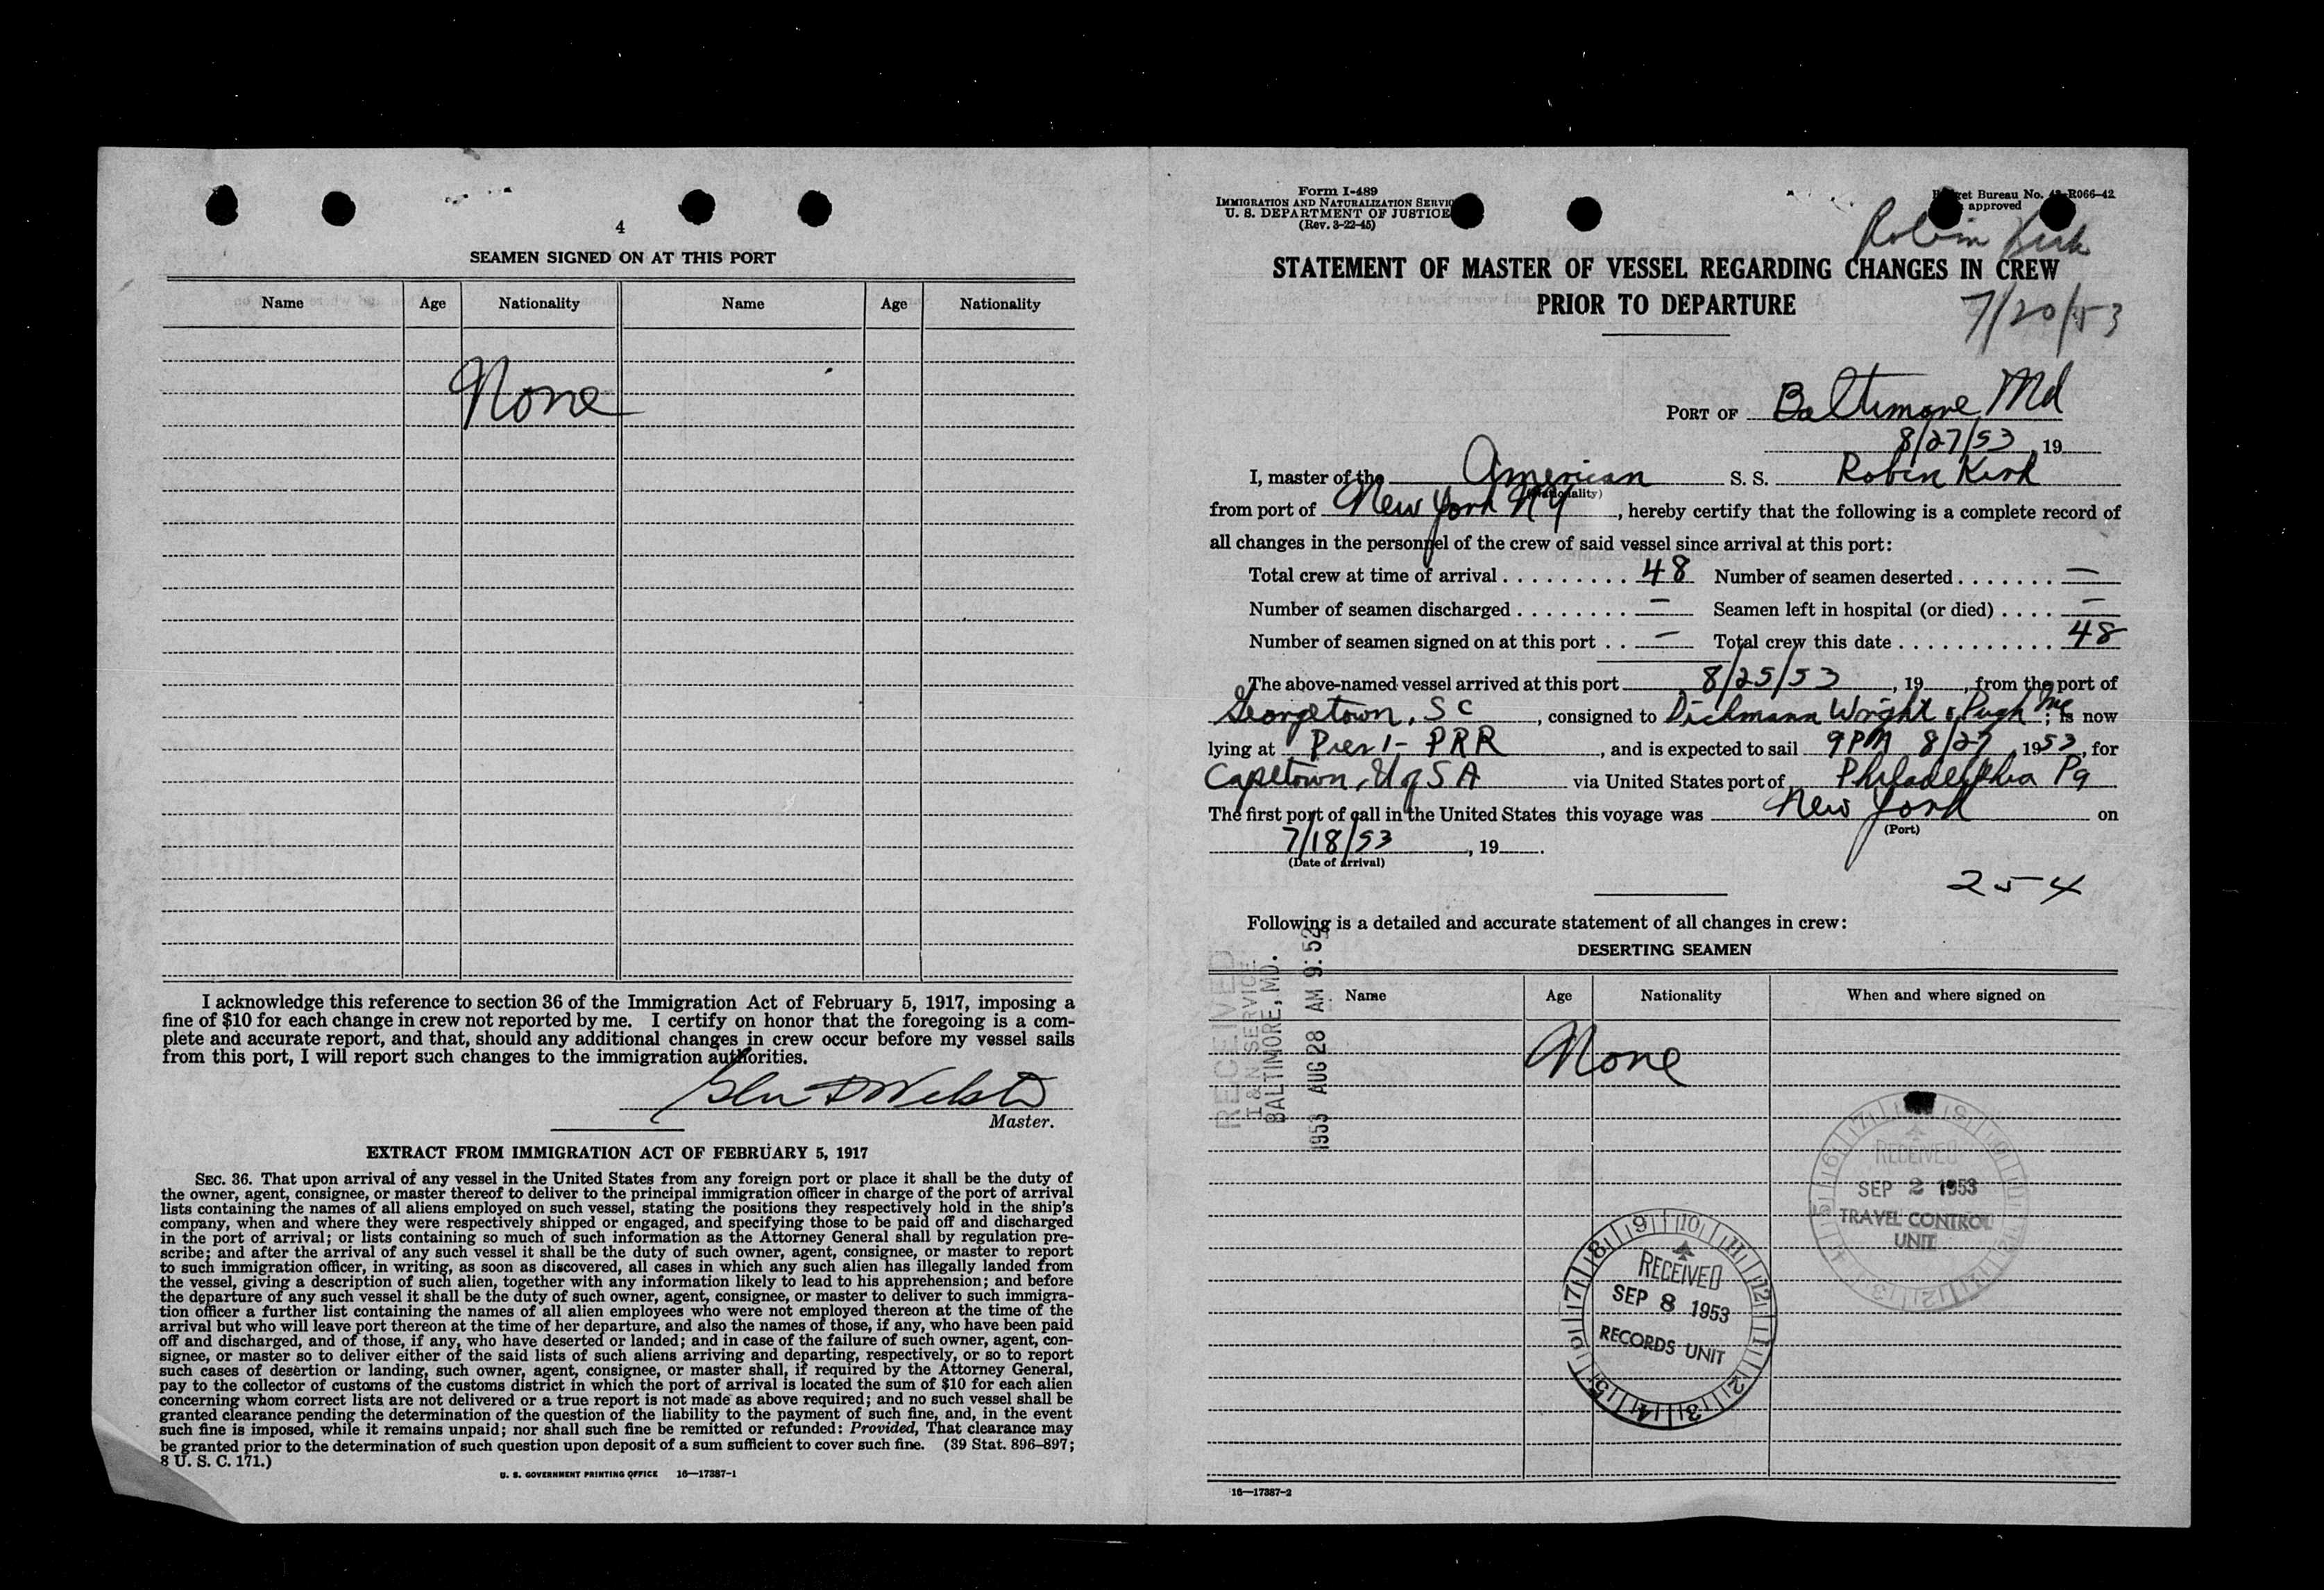 4
SEAMEN SIGNED ON AT THIS PORT
Name Age Nationality Name Age Nationality
None
I acknowledge this reference to section 36 of the Immigration Act of February 5, 1917, imposing a
fine of $10 for each change in crew not reported by me. I certify on honor that the foregoing is a com-
plete and accurate report, and that, should any additional changes in crew occur before my vessel sails
from this port, I will report such changes to the immigration authorities.
Master.
EXTRACT FROM IMMIGRATION ACT OF FEBRUARY 5, 1917
SEC. 36. That upon arrival of any vessel in the United States from any foreign port or place it shall be the duty of
the owner, agent, consignee, or master thereof to deliver to the principal immigration officer in charge of the port of arrival
lists containing the names of all aliens employed on such vessel, stating the positions they respectively hold in the ship's
company, when and where they were respectively shipped or engaged, and specifying those to be paid off and discharged
in the port of arrival; or lists containing so much of such information as the Attorney General shall by regulation pre-
scribe; and after the arrival of any such vessel it shall be the duty of such owner, agent, consignee, or master to report
to such immigration officer, in writing, as soon as discovered, all cases in which any such alien has illegally landed from
the vessel, giving a description of such alien, together with any information likely to lead to his apprehension; and before
the departure of any such vessel it shall be the duty of such owner, agent, consignee, or master to deliver to such immigra-
tion officer a further list containing the names of all alien employees who were not employed thereon at the time of the
arrival but who will leave port thereon at the time of her departure, and also the names of those, if any, who have been paid
off and discharged, and of those, if any, who have deserted or landed; and in case of the failure of such owner, agent, con-
signee, or master so to deliver either of the said lists of such aliens arriving and departing, respectively, or so to report
such cases of desertion or landing, such owner, agent, consignee, or master shall, if required by the Attorney General,
pay to the collector of customs of the customs district in which the port of arrival is located the sum of $10 for each alien
concerning whom correct lists are not delivered or a true report is not made as above required; and no such vessel shall be
granted clearance pending the determination of the question of the liability to the payment of such fine, and, in the event
such fine is imposed, while it remains unpaid; nor shall such fine be remitted or refunded: Provided, That clearance may
be granted prior to the determination of such question upon deposit of a sum sufficient to cover such fine. (39 Stat. 896–897;
8 U. S. C. 171.)
U. S. GOVERNMENT PRINTING OFFICE 16—17387-1
Form I-489
IMMIGRATION AND NATURALIZATION SERVIC
U. S. DEPARTMENT OF JUSTICE
(Rev. 3-22-45)
Bureau No. R066-42
approved
Robin Kirk
STATEMENT OF MASTER OF VESSEL REGARDING CHANGES IN CREW
PRIOR TO DEPARTURE
7/20/53
PORT OF Baltimore Md
8/27/53, 19
I, master of the American S. S. Robin Kirk
(Nationality)
from port of New York NY, hereby certify that the following is a complete record of
all changes in the personnel of the crew of said vessel since arrival at this port:
Total crew at time of arrival 48 Number of seamen deserted —
Number of seamen discharged — Seamen left in hospital (or died) —
Number of seamen signed on at this port — Total crew this date 48
The above-named vessel arrived at this port 8/25/53, 19, from the port of
Georgetown, SC, consigned to Dichmann Wright & Pugh Inc; is now
lying at Pier 1 - PRR, and is expected to sail 9PM 8/27, 1953, for
Capetown, U of SA via United States port of Philadelphia Pa
The first port of call in the United States this voyage was New York on
(Port)
7/18/53, 19
(Date of arrival)
254
Following is a detailed and accurate statement of all changes in crew:
DESERTING SEAMEN
Name Age Nationality When and where signed on
None
RECEIVED
I & N SERVICE
BALTIMORE, MD.
1953 AUG 28 AM 9:52
RECEIVED
SEP 2 1953
TRAVEL CONTROL
UNIT
RECEIVED
SEP 8 1953
RECORDS UNIT
16—17387-2